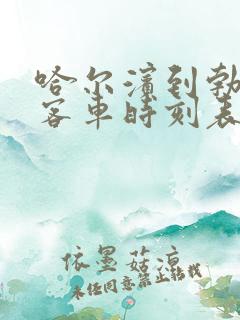 哈尔滨到勃
客车时刻表
依墨菇凉
未经同意禁止转载